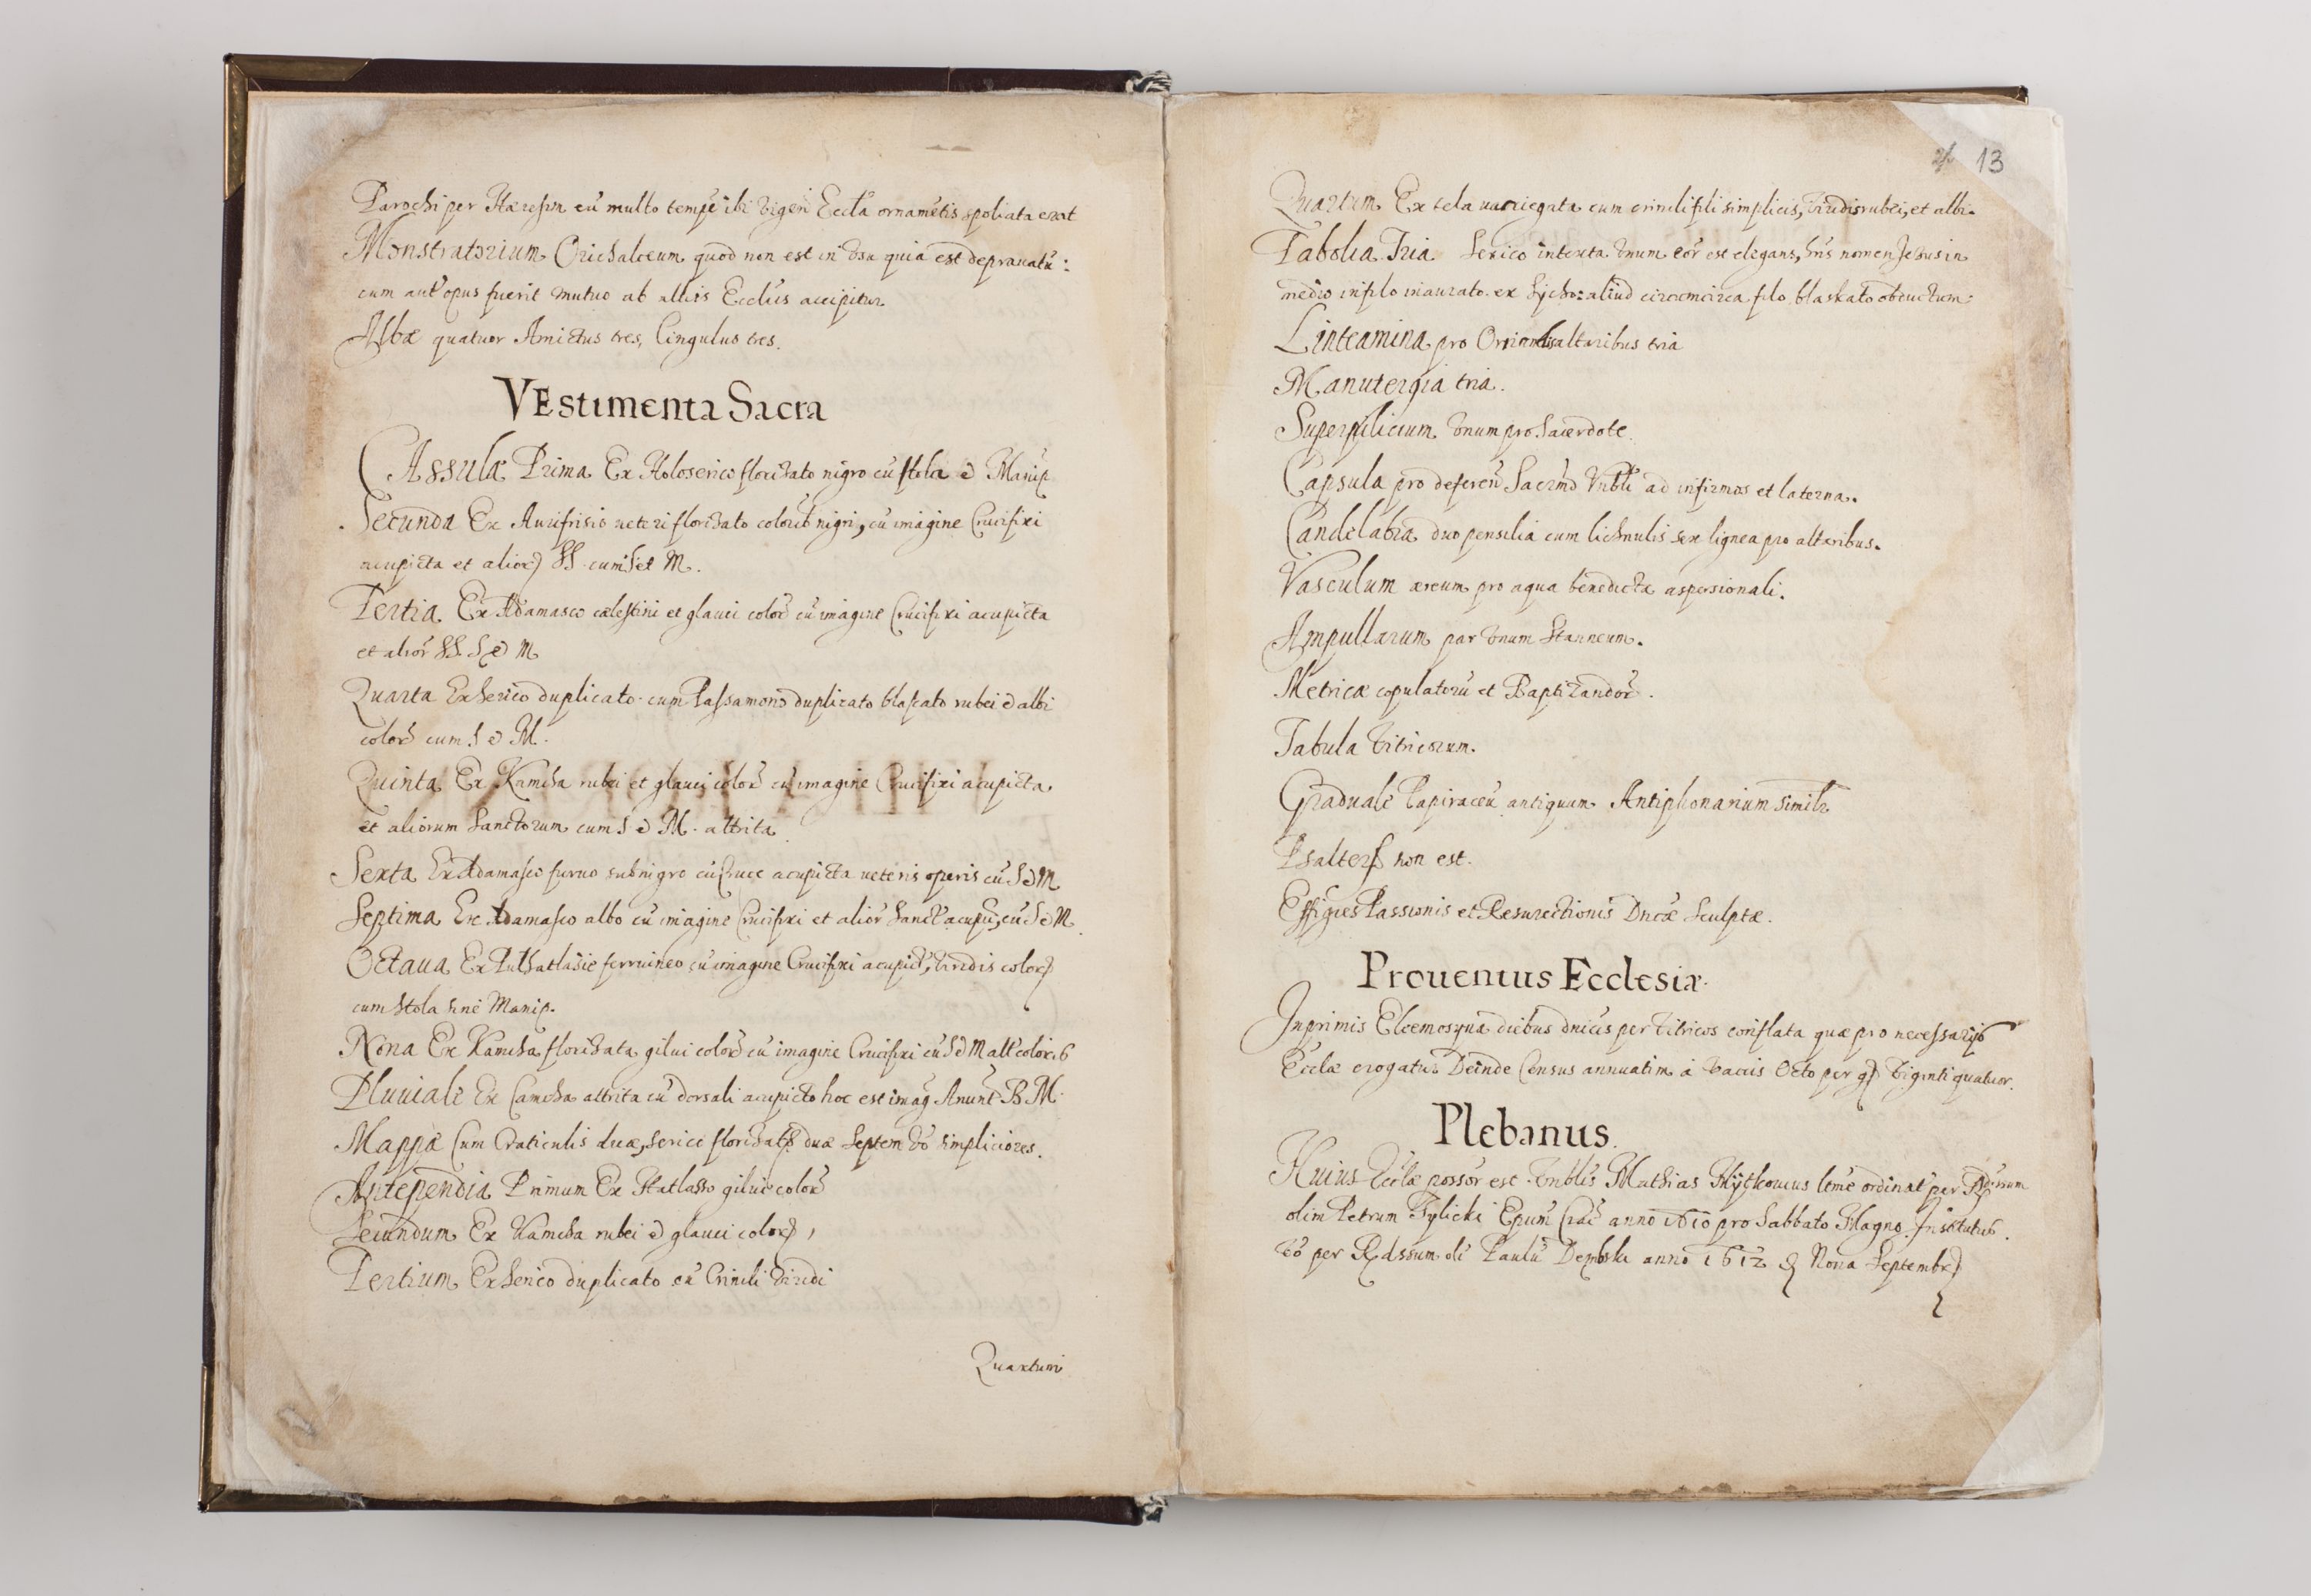 Parochi per Hæresim cū multo tempe ibi vigeri Eccľa ornamētis spoliata erat
Monstratorium Orichalceum quod non est in vsu quia est deprauatū:
cum aut opus fuerit mutuo ab aliis Eccliis accipitur
Albæ quatuor Amictus tres, Cingulus tres.
VEstimenta Sacra
CAssulæ Prima Ex Holoserico floridato nigro cū stola et Manip
Secunda Ex Aurifrisio veteri floridato colorib nigri, cū imagine Crucifixi
acupicta et alior SS. cum S et M.
Tertia Ex Adamasco cælestini et glauci color cū imagine Crucifixi acupicta
et alior SS. S et M
Quarta Ex Serico duplicato cum Passamono duplicato blascato rubei et albi
color cum S et M.
Quinta Ex Kamcha rubei et glauci color cū imagine Crucifixi acupicta
et aliorum Sanctorum cum S et M. attrita
Sexta Ex Adamasco furuo subnigro cū Cruce acupicta veteris operis cū S et M
Septima Ex Adamasco albo cū imagine Crucifixi et alior Sanct acupi, cū S et M.
Octaua Ex ferruineo cū imagine Crucifixi acupict, viridis color
cum Stola sine Manip.
Nona Ex Kamcha floridata gilui color cū imagine Crucifixi cū S et M alt colorib
Pluuiale Ex Camcha attrita cū dorsali acupicto hoc est imag Anunt B M.
Mappæ Cum Craticulis duæ, serico floridatæ duæ Septem vo simpliciores.
Antependia Primum Ex Hatlasso giluic color
Secundum Ex Kamcha rubei et glauci color,
Tertium Ex Serico duplicato cū Crinili viridi
Quartum
13
Quartum Ex tela uariegata cum crinili fili simplicis, viridis rubei, et albi.
Tabolia Tria Serico intexta vnum eor est elegans, hns nomen Jesus in
medio in filo inaurato ex aliud circumcirca filo blaskato obductum:
Linteamina pro altaribus tria
Manutergia tria.
Superpilicium vnum pro Sacerdote.
Capsula pro deferen Sacrmo ad infirmos et laterna.
Candelabra duo pensilia cum lichnulis sex lignea pro altaribus.
Vasculum æreum pro aqua benedicta aspersionali.
Ampullarum par vnum Stanneum.
Metricæ copulatorū et Baptizandor.
Tabula vitricorum.
Graduale Papiraceū antiquum Antiphonarium simile
Psalter non est.
Effigies Passionis et Resurectionis Dncæ Sculptæ.
Prouentus Ecclesiæ.
Inprimis Eleemosyna diebus dnicis per vitricos conflata quæ pro necessarijs
Ecclæ erogatur Deinde Census annuatim à vaccis Octo per gr viginti quatuor.
Plebanus.
Huius Ecclæ possor est Mathias ltme ordinat per Rdissum
olim Petrum Tylicki Epum Crac anno 1610 pro Sabbato Magno. Institutus.
vo per Rdssum oli Paulū Dembski anno 1612 Nona Septembr